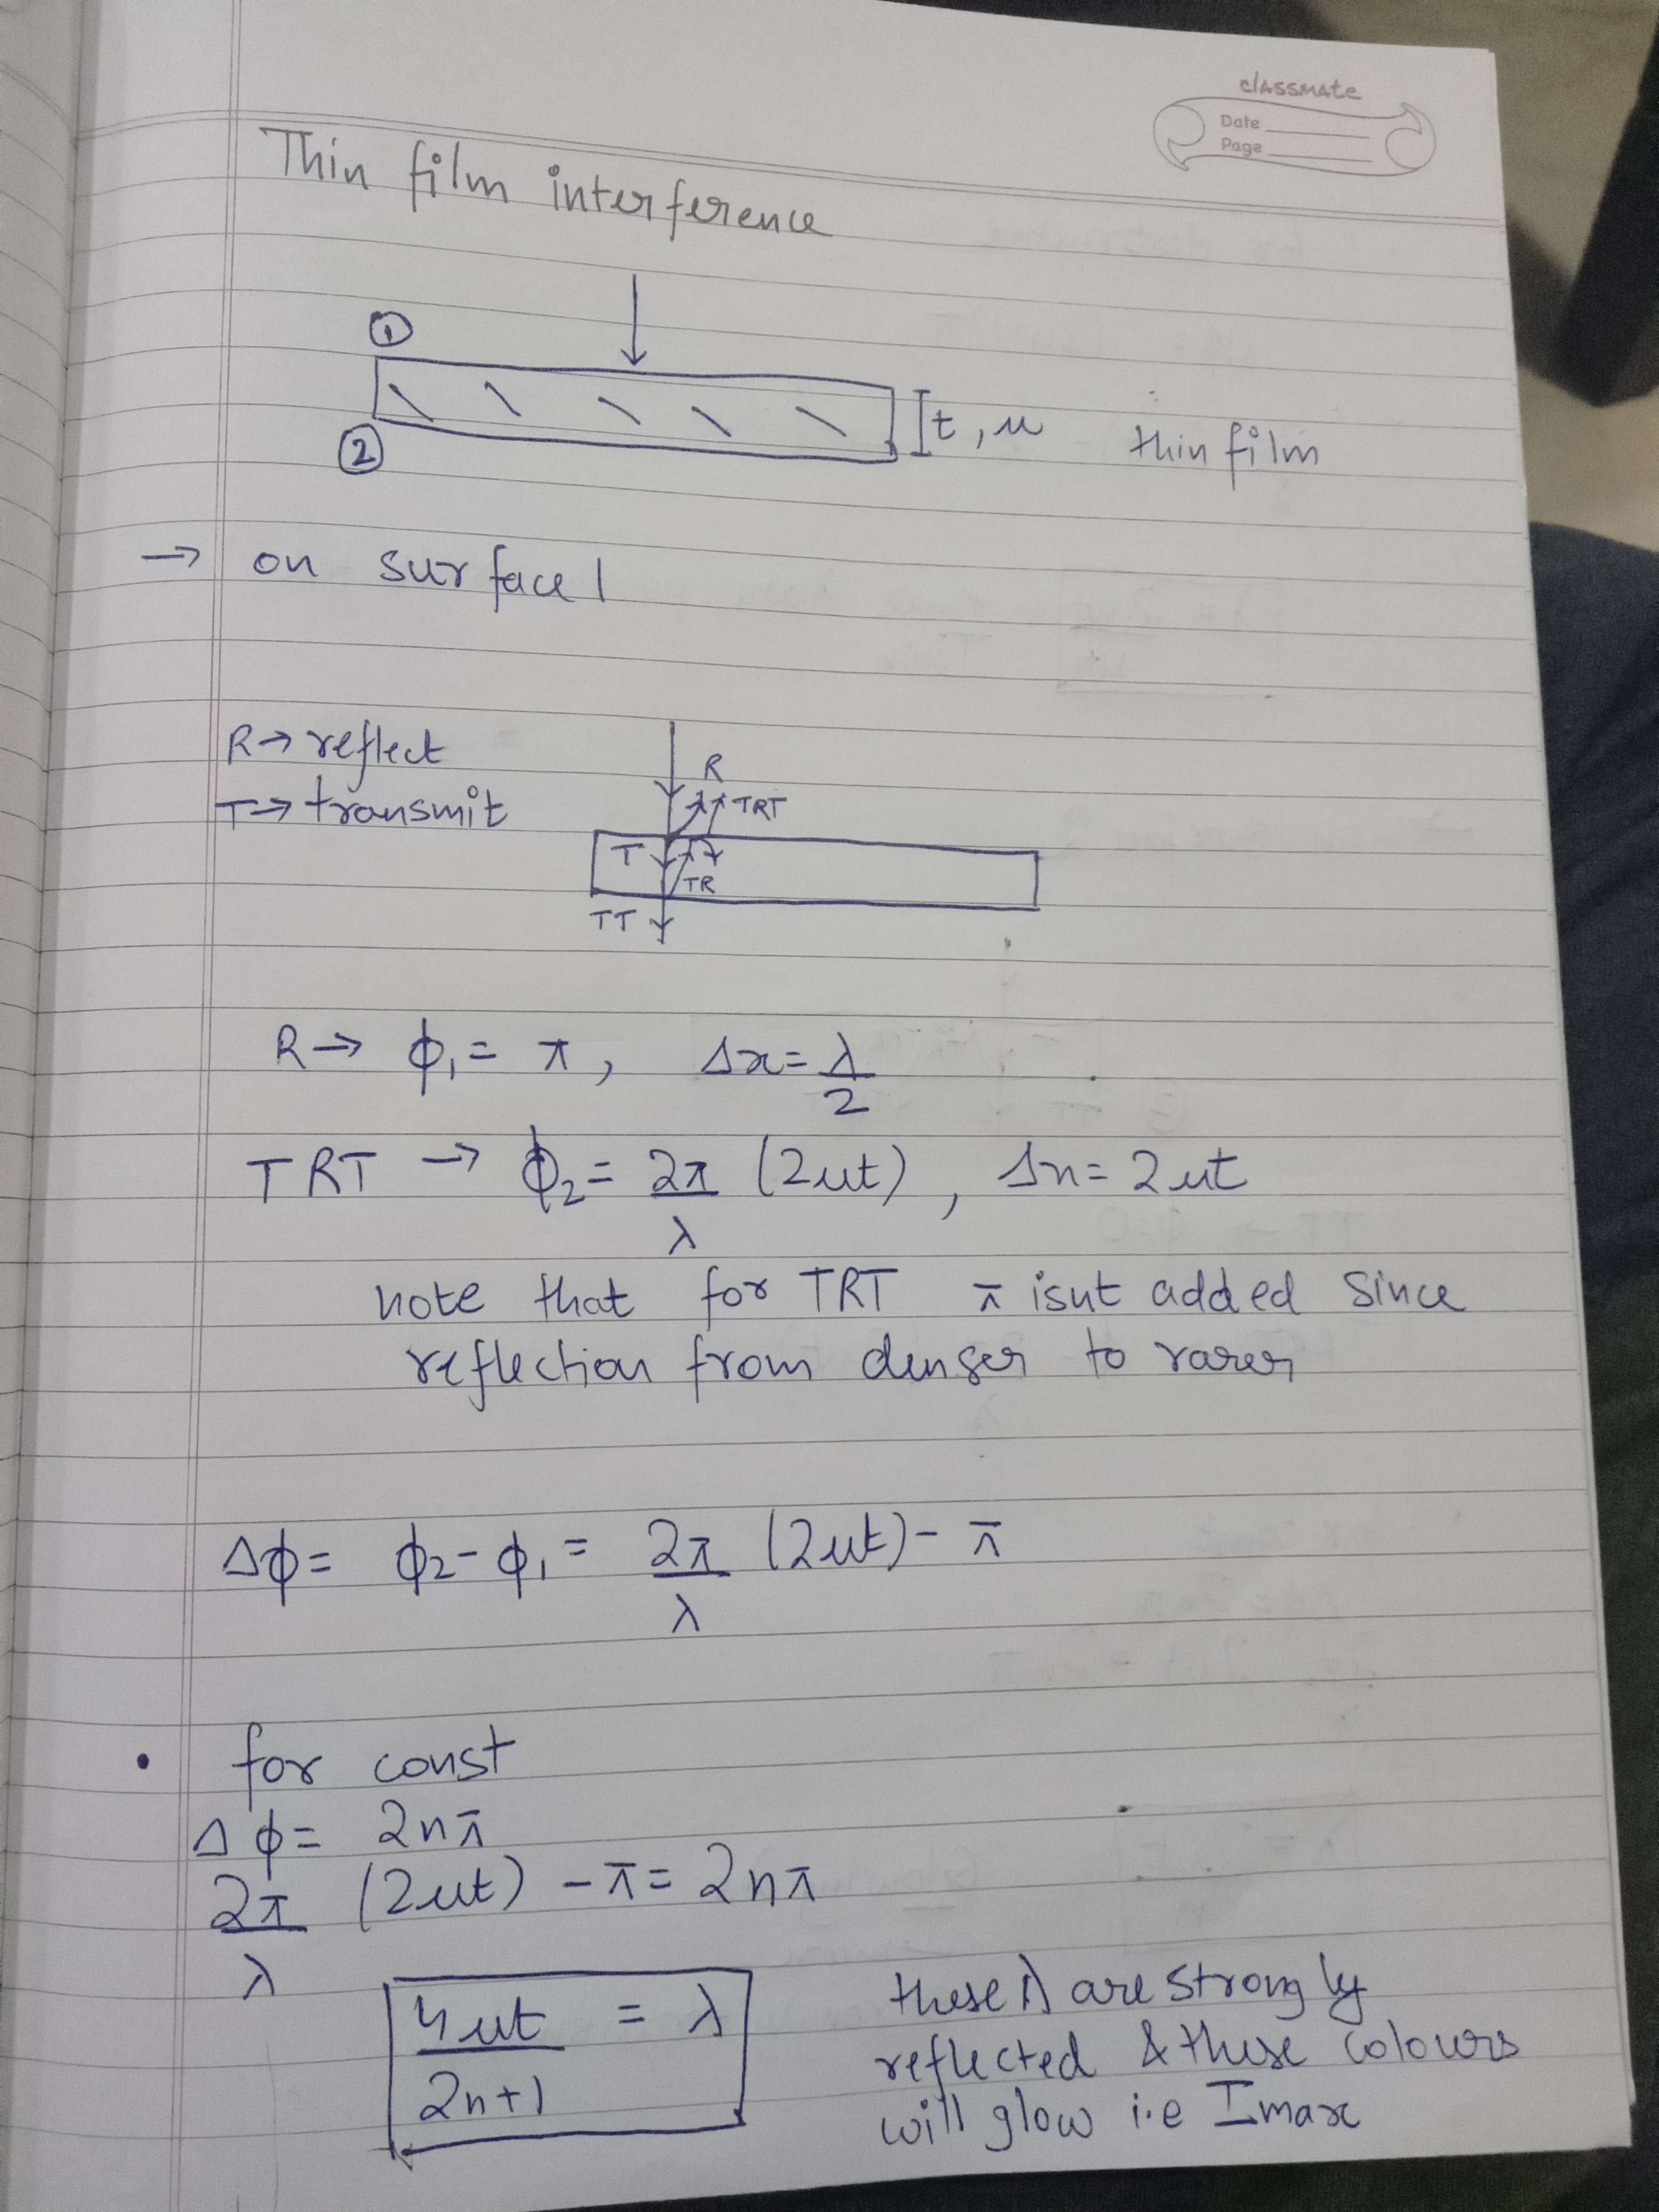 classmate
Date
Page
Thin film interference
①
②
t, μ thin film
→ on surface 1
R→ reflect
T→ transmit
R
TRT
T
TR
TT
R→ ϕ₁= π, Δx= λ/2
TRT → ϕ₂= 2π/λ (2μt), Δx= 2μt
note that for TRT π isnt added since
reflection from denser to rarer
Δϕ= ϕ₂-ϕ₁= 2π/λ (2μt)- π
• for const
Δϕ= 2nπ
2π/λ (2μt) -π= 2nπ
4μt/2n+1 = λ
these λ are strongly
reflected & these colours
will glow i.e Imax